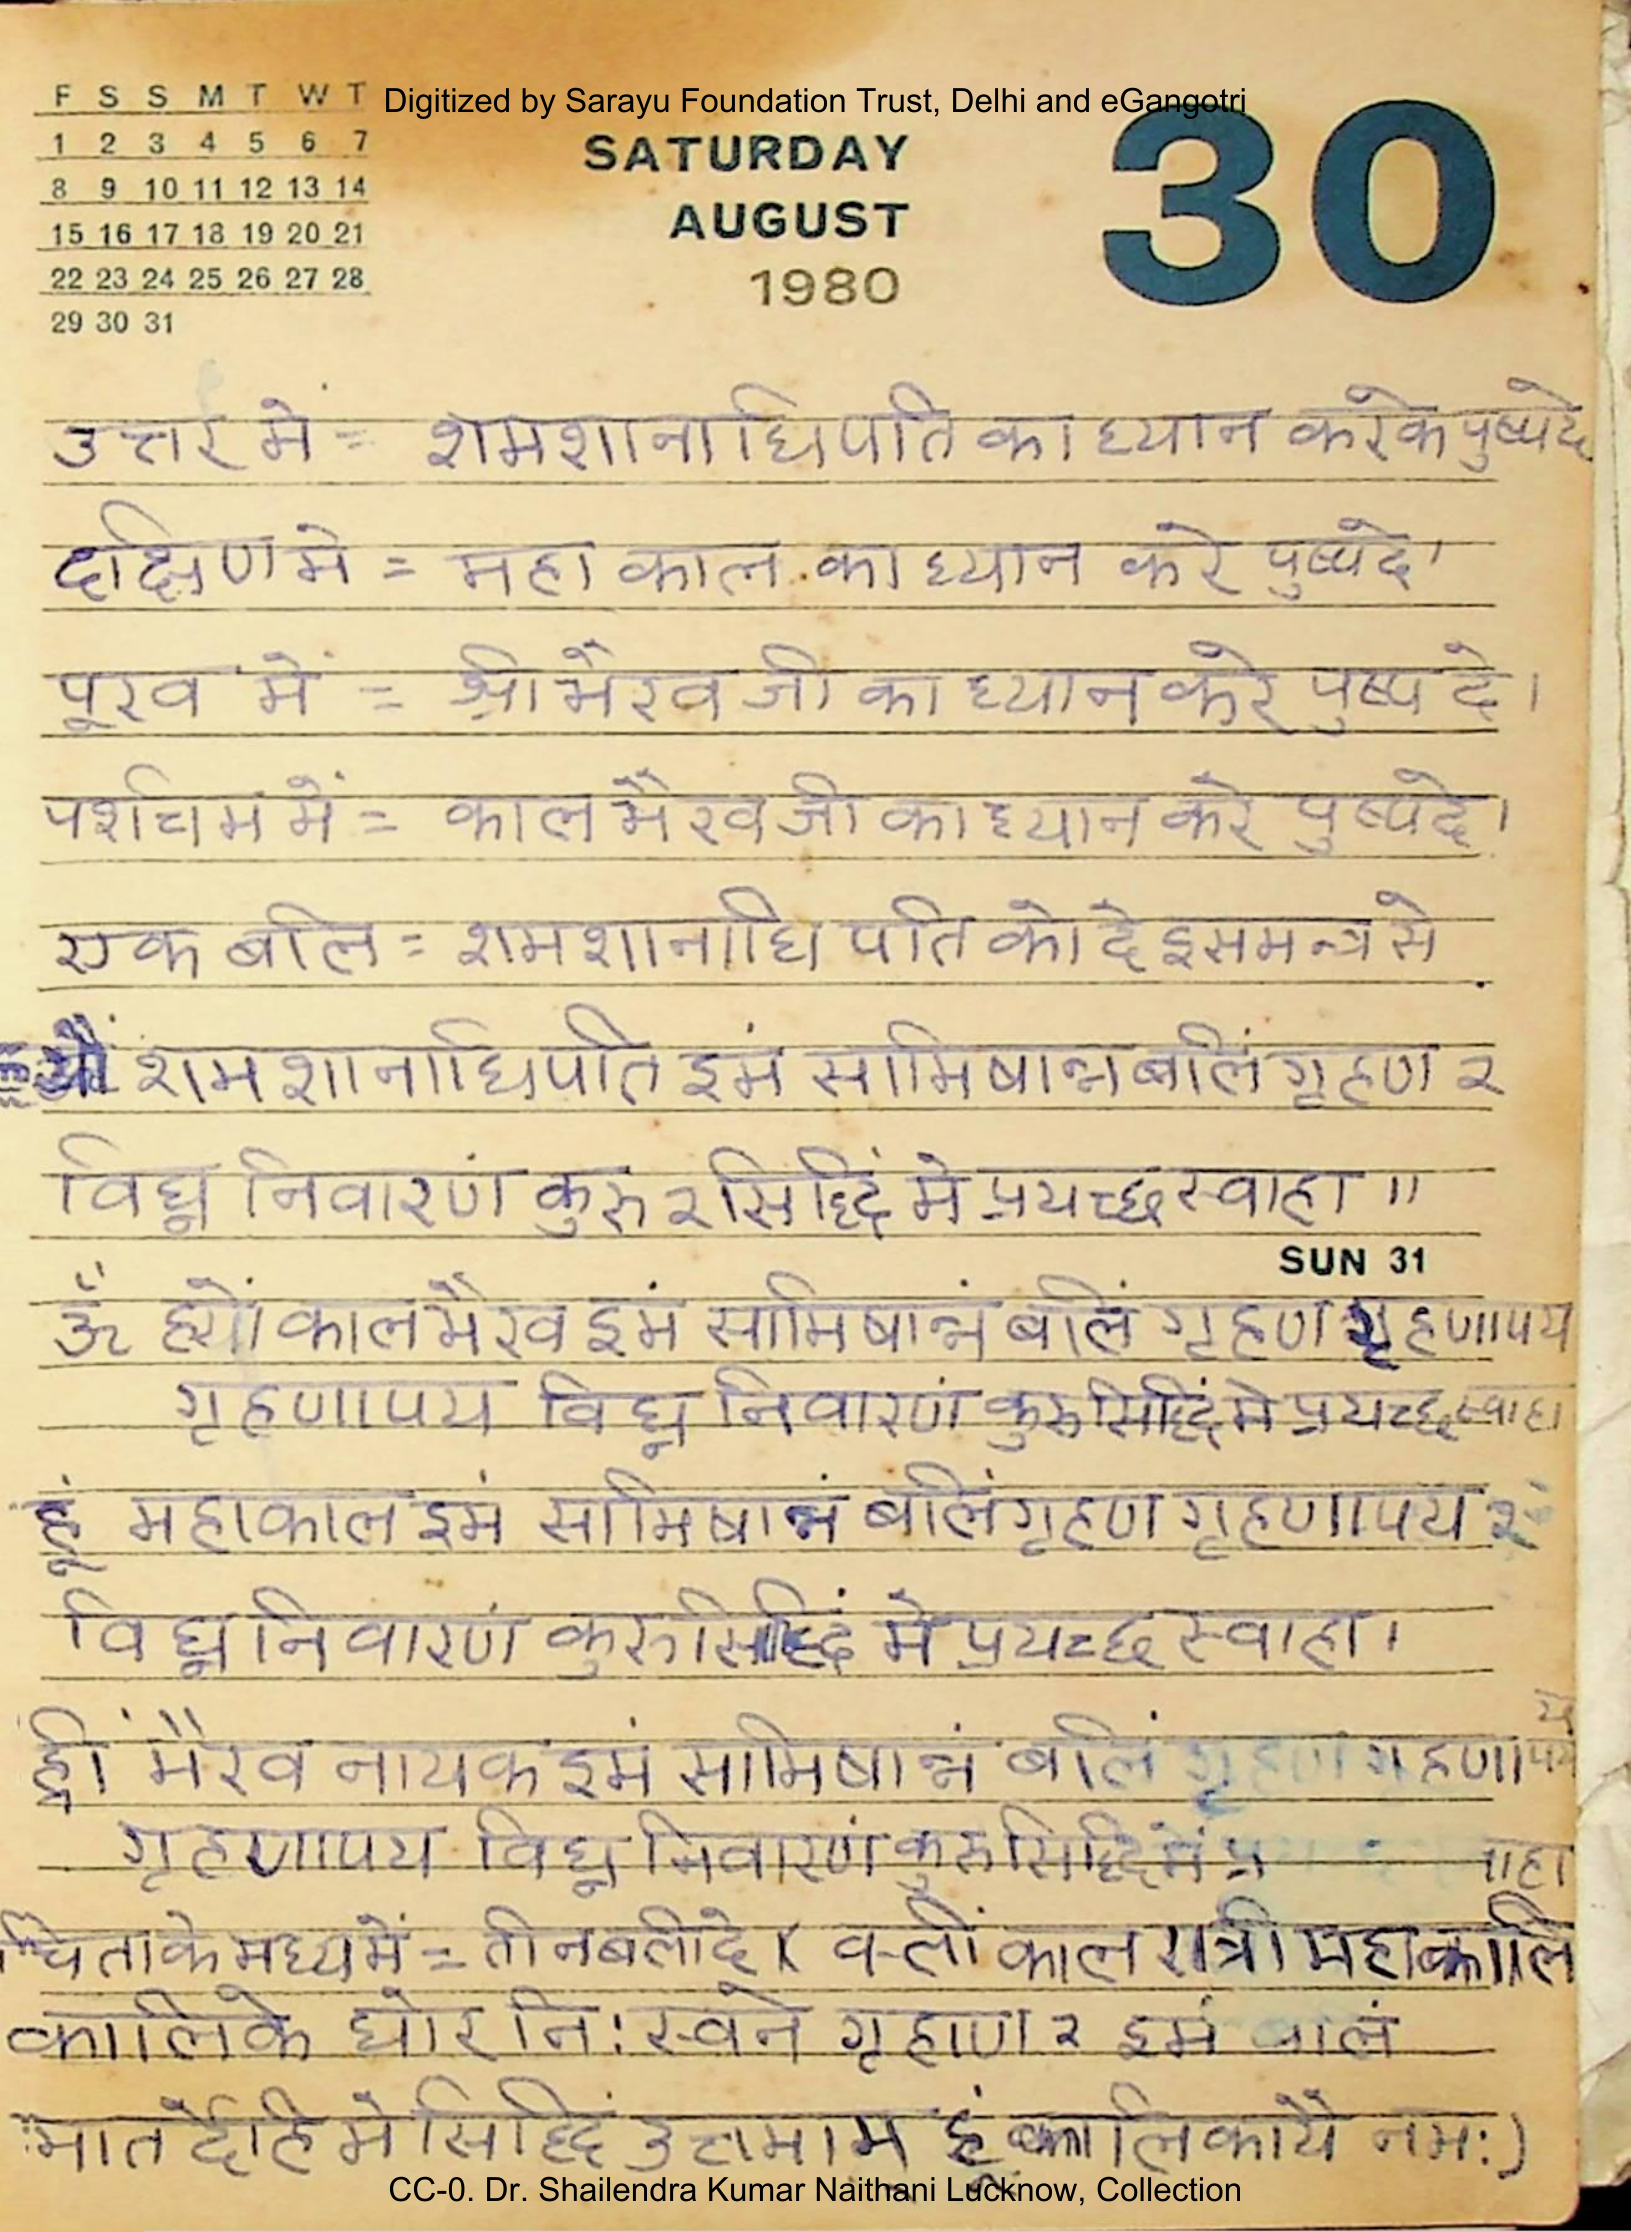 F S S M T W T
Digitized by Sarayu Foundation Trust, Delhi and eGangotri
1 2 3 4 5 6 7
8 9 10 11 12 13 14
15 16 17 18 19 20 21
22 23 24 25 26 27 28
29 30 31
SATURDAY
AUGUST
1980
30
उत्तर में = शमशानाधिपति का ध्यान करके पुष्पदे
दक्षिण मे = महाकाल का ध्यान करे पुष्पदे।
पूरव में = श्री भैरव जी का ध्यान करे पुष्प दे।
पश्चिम में = काल भैरव जी का ध्यान करे पुष्पदे।
एक बलि = शमशानाधिपति को दे इस मन्त्र से
शमशानाधिपति इमं सामिषान्न बलिं गृहण २
विघ्न निवारणं कुरु २ सिद्धिं मे प्रयच्छ स्वाहा ॥
SUN 31
ॐ काल भैरव इमं सामिषान्नं बलिं गृहण गृहणापय
गृहणापय विघ्न निवारणं कुरु सिद्धिं मे प्रयच्छ स्वाहा
हूं महाकाल इमं सामिषान्नं बलिं गृहण गृहणापय २
विघ्न निवारणं कुरु सिद्धिं मे प्रयच्छ स्वाहा।
ह्रीं भैरव नायक इमं सामिषान्नं बलिं गृहण गृहणापय
गृहणापय विघ्न निवारणं कुरु सिद्धिं में
चिता के मध्य में = तीन बली दे ( क्लीं काल रात्री महाकालि
कालिके घोर निःस्वने गृहाण २ इमं
मातर्देहि मे सिद्धिं उत्तमाम हूं कालिकायै नमः)
CC-0. Dr. Shailendra Kumar Naithani Lucknow, Collection